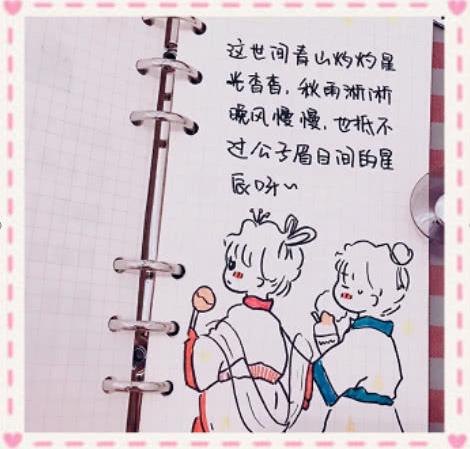 这世间青山灼灼星
光杳杳，秋雨淅淅
晚风慢慢，也抵不
过公子眉目间的星
辰呀~